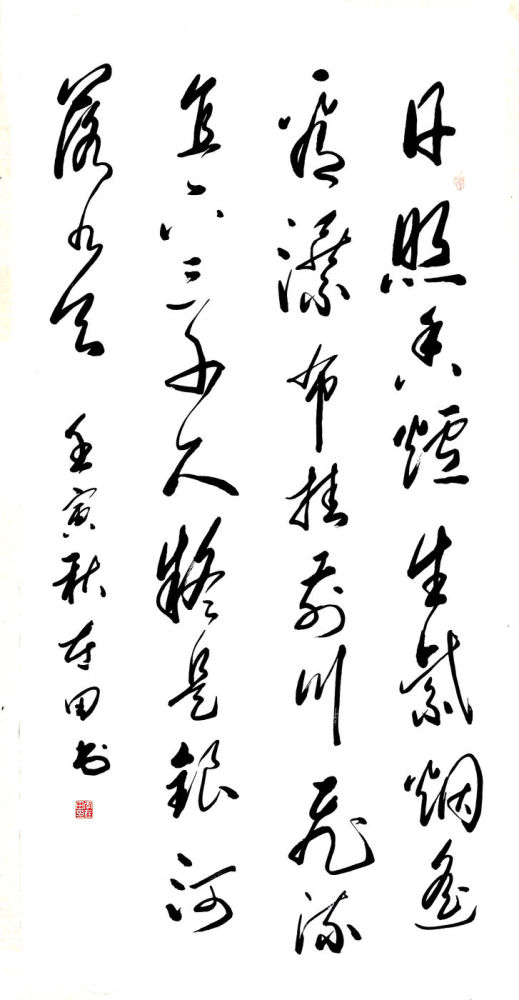 日照香爐生紫烟遥
看瀑布挂前川飛流
直下三千尺疑是銀河
落九天 壬寅秋 田书